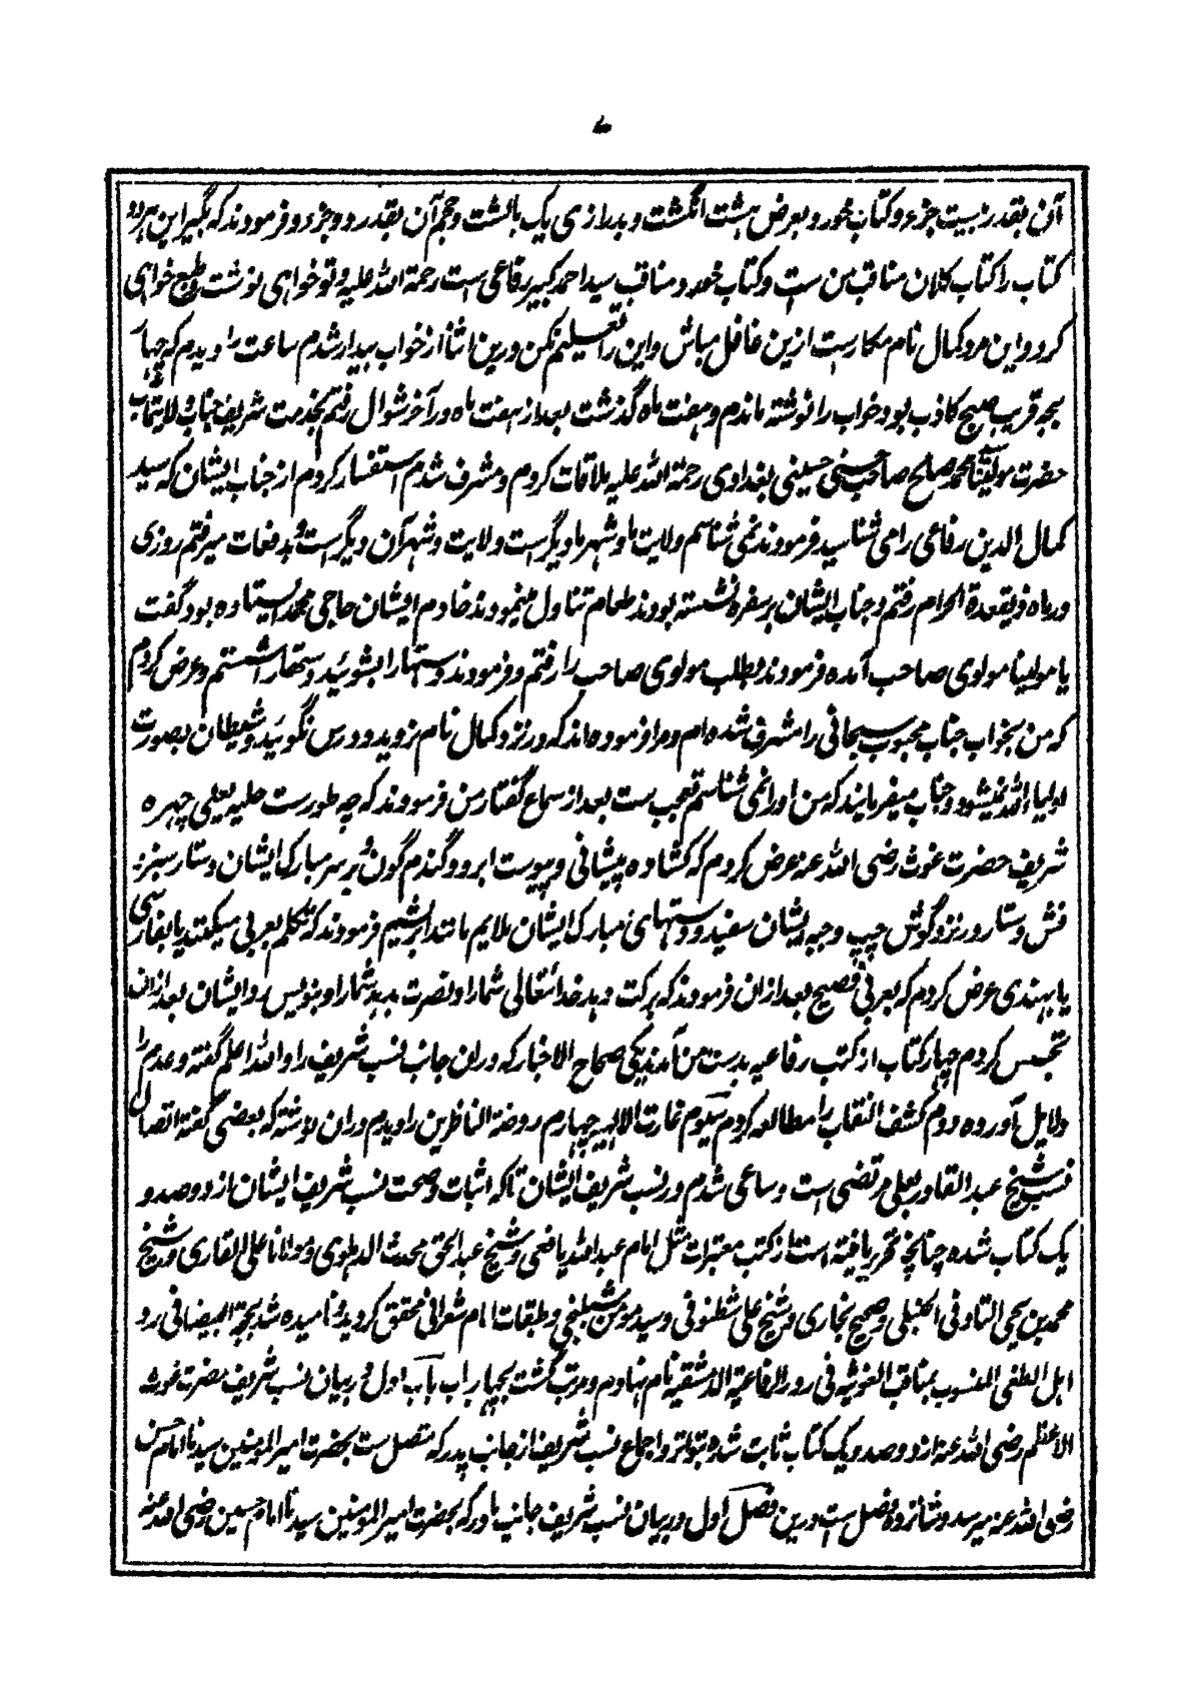 ۷
آن بقدر بیست جزء و کتاب خورد بعرض هشت انگشت و بدرازی یک بالشت و حجم آن بقدر دو جزء و فرمودند که بگیر این هر دو
کتاب را کتاب کلان مناقب من ست و کتاب خورد مناقب سید احمد کبیر رفاعی است رحمة الله علیه و تو خواهی نوشت و طبع خواهی
کرد و این مرد کمال نام مکارست ازین غافل مباش و این را تعلیم نکن درین اثنا از خواب بیدار شدم ساعت را دیدم که چهار
بجه قریب صبح کاذب بود خواب را نوشته ماندم و هفت ماه گذشت بعد از هفت ماه در آخر شوال رفتم بخدمت شریف جناب ولایتمآب
حضرت مولینا محمد صالح صاحب حسنی حسینی بغدادی رحمة الله علیه ملاقات کردم و مشرف شدم استفسار کردم از جناب ایشان که سید
کمال الدین رفاعی را می شناسید فرمودند نمی شناسم ولایت ما و شهر ما دیگرست ولایت و شهر آن دیگرست و بدفعات میرفتم روزی
در ماه ذیقعدة الحرام رفتم و جناب ایشان بر سفره نشسته بودند طعام تناول مینمودند خادم ایشان حاجی محمد ایستاده بود گفت
یا مولینا مولوی صاحب آمده فرمودند بطلب مولوی صاحب را رفتم و فرمودند دستها را بشوئید دستها را شستم و عرض کردم
که من بخواب جناب محبوب سبحانی را مشرف شده ام و مرا فرموده اند که در نزد کمال نام نروید و درس نگوئید و شیطان بصورت
اولیاء الله نمیشود و جناب میفرمایند که من او را نمی شناسم تعجب ست بعد از سماع گفتار من فرمودند که چه طورست حلیه یعنی چهره
شریف حضرت غوث رضی الله عنه عرض کردم که کشاده پیشانی و پیوست ابرو و گندم گون و بر سر مبارک ایشان دستار سبز و
فش دستار در نزد گوش چپ و جبه ایشان سفید و دستهای مبارک ایشان ملایم مانند ابریشم فرمودند که تکلم بعربی میکنند یا بفارسی
یا بهندی عرض کردم که بعربی فصیح بعد ازان فرمودند که برکت دهد خدا تعالی شما را و نصرت بدهد شما را و بنویس رد ایشان بعد ازان
تجسس کردم چهار کتاب از کتب رفاعیه بدست من آمد یکی صحاح الاخبار که دران جانب نسب شریف را والله اعلم گفته و عدم را
دلایل آورده دوم کشف النقاب را مطالعه کردم سیوم غارت الالهیه چهارم روضة الناظرین را دیدم دران نوشته که بعضی گفته اتصال
نسب شیخ عبد القادر بعلی مرتضی است و ساعی شدم در نسب شریف ایشان تا که اثبات و صحت نسب شریف ایشان از دو صد و
یک کتاب شده چنانچه تحریر یافته است از کتب معتبرات مثل امام عبد الله یافعی و شیخ عبد الحق محدث الدهلوی و مولانا علی القاری و شیخ
محمد بن یحیی التادفی الحنبلی و صحیح بخاری و شیخ علی شطنوفی و سید مومن شبلنجی و طبقات امام شعرانی محقق گردید و نامیده شد بحجة البیضا فی رد
اهل الطغی المنسوب بمناقب الغوثیه فی رد الرفاعیة الدمشقیه نام نهادم و مرتب گشت بچهار باب باب اول در بیان نسب شریف حضرت غوث
الاعظم رضی الله عنه از دو صد و یک کتاب ثابت شده بتواتر و اجماع نسب شریف از جانب پدر که متصل ست بحضرت امیر المومنین سیدنا امام حسن
رضی الله عنه میرسد و شانزده فصل ست درین فصل اول در بیان نسب شریف جانب مادر که بحضرت امیر المومنین سیدنا امام حسین رضی الله عنه